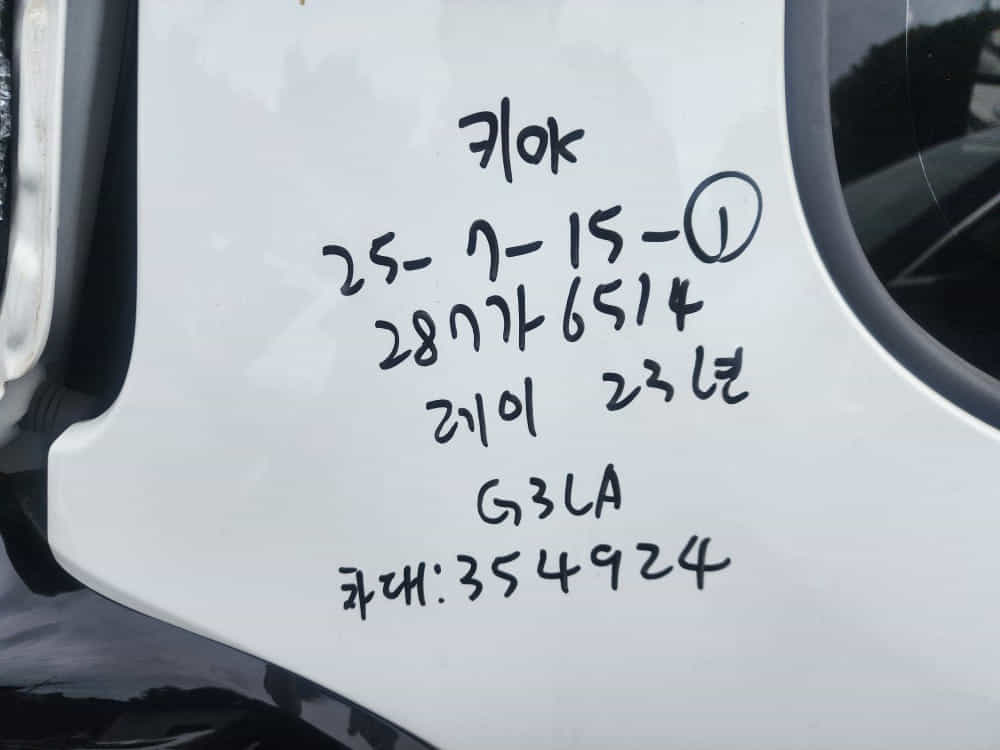 키ok
25-7-15-①
287가6514
레이 23년
G3LA
차대:354924